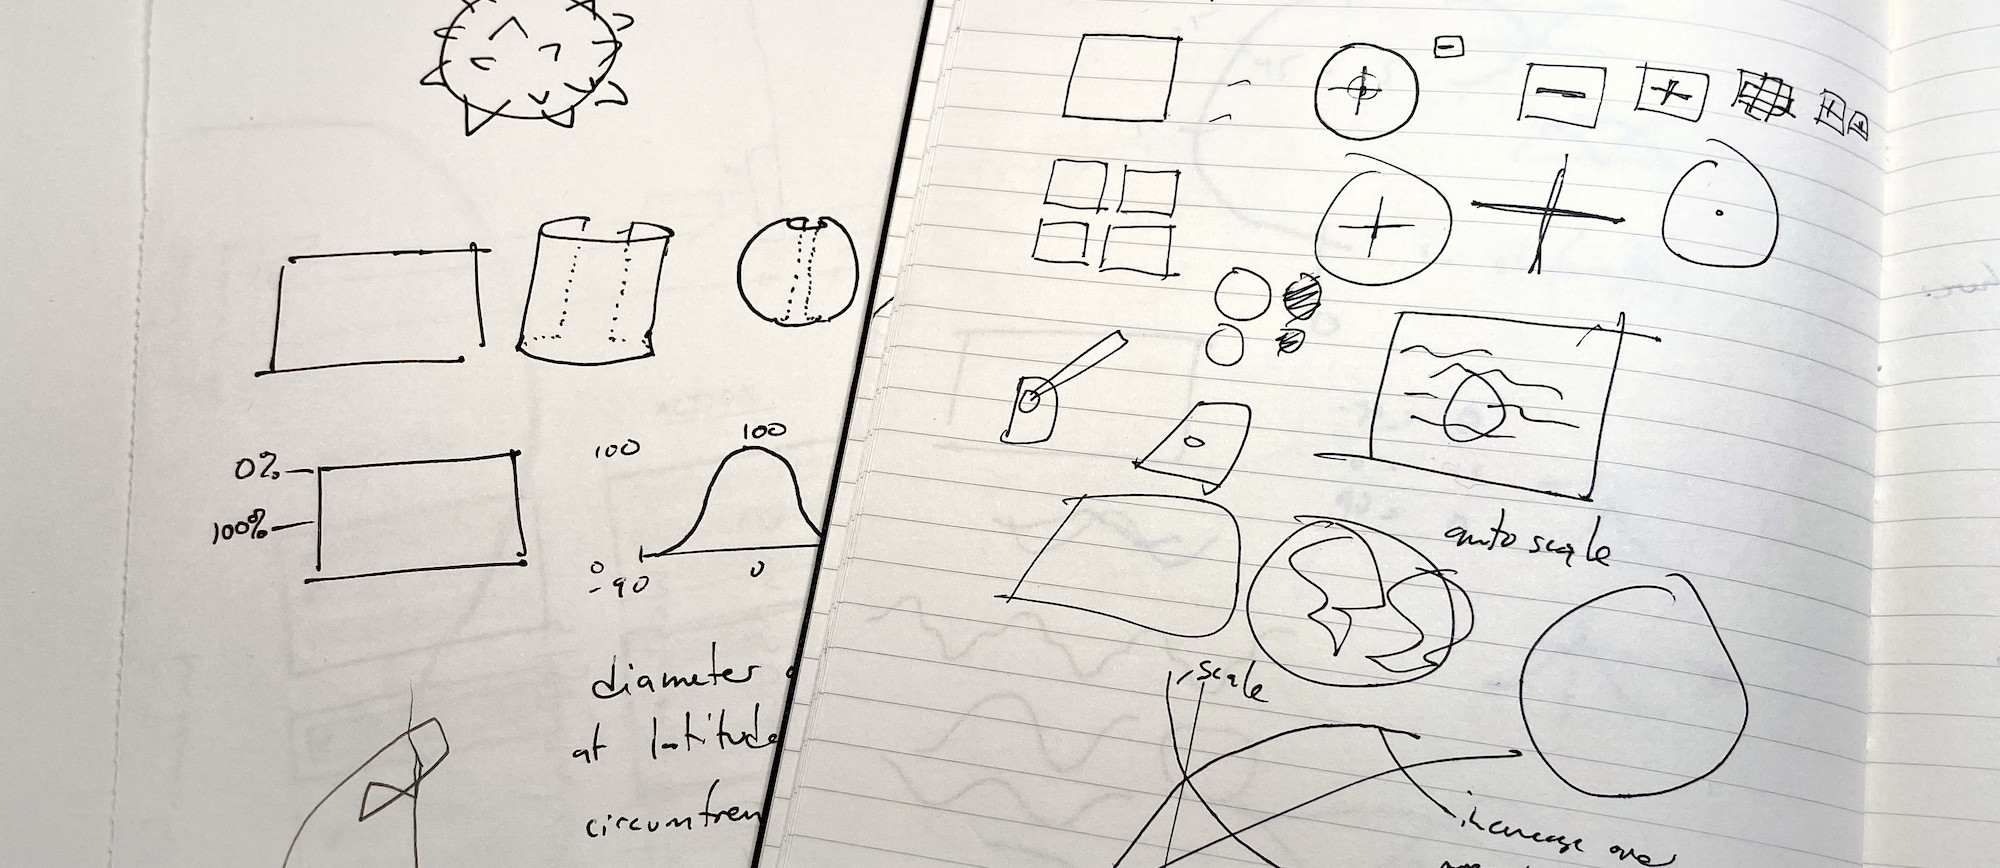 0%
100%
100
100
0
-90
0
diameter
at latitude
circumfren
auto scale
scale
increase one